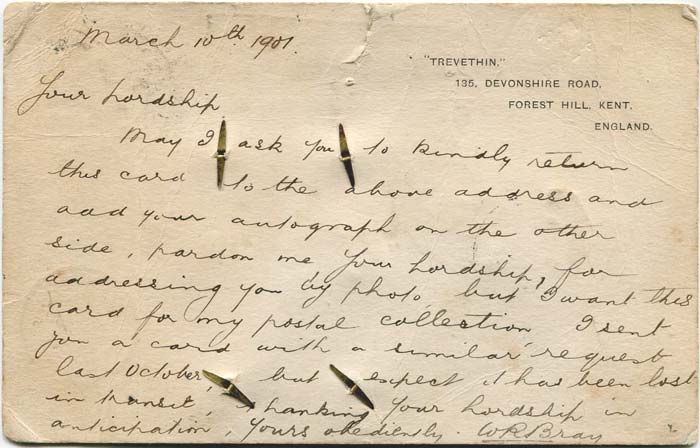 March 10th 1901.
"TREVETHIN,"
135, DEVONSHIRE ROAD,
FOREST HILL, KENT,
ENGLAND.
Your Lordship
May I ask you to kindly return
this card to the above address and
add your autograph on the other
side, pardon me Your Lordship, for
addressing you by photo, but I want this
card for my postal collection I sent
you a card with a similar request
last October, but expect it has been lost
in transit, thanking Your Lordship in
anticipation, Yours obediently. WRBray